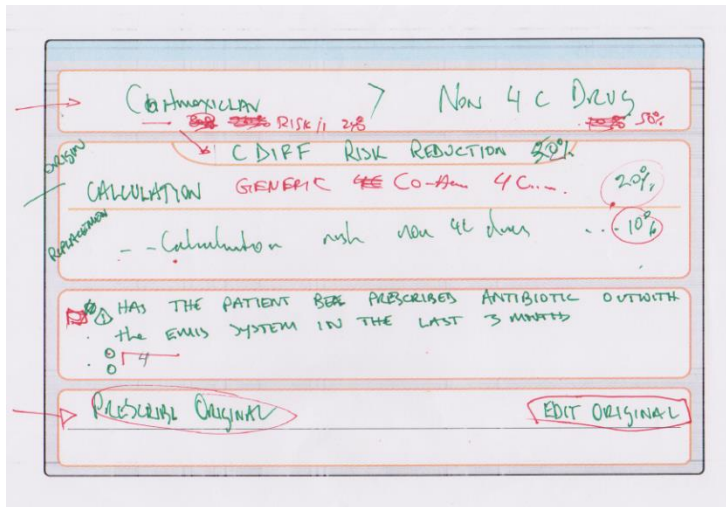 Coamoxiclav > Non 4 C Drug
RISK // 20% 50%
C DIFF RISK REDUCTION 20%
ORIGIN
CALCULATION GENERIC Co-Am 4 C.... 20%
REPLACEMENT
-- Calculation risk non 4C drug ... 10%
HAS THE PATIENT BEE PRESCRIBED ANTIBIOTIC OUTWITH
the EMIS SYSTEM IN THE LAST 3 MONTHS
4
PRESCRIBE ORIGINAL EDIT ORIGINAL